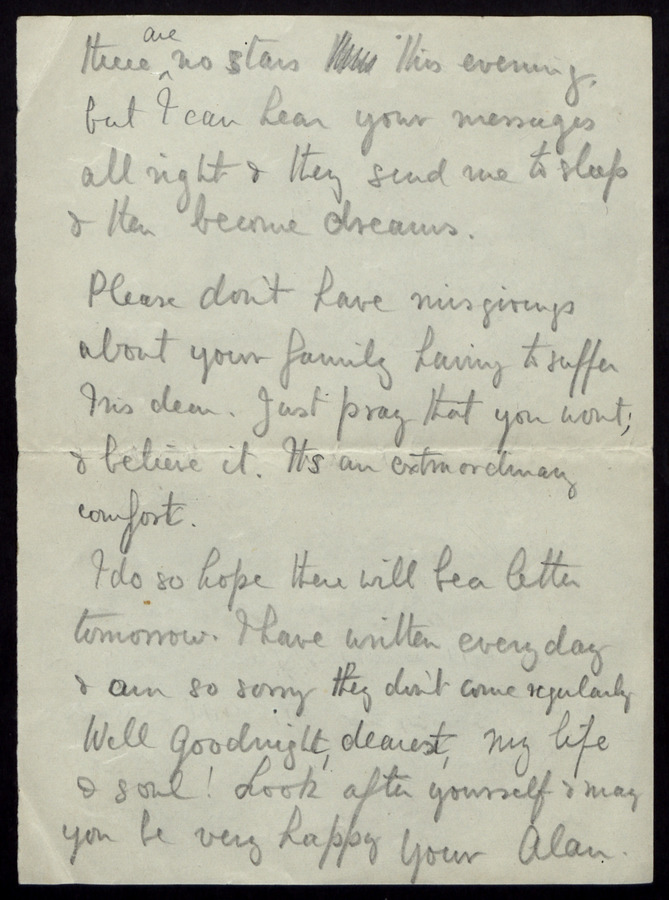 there are no stars this evening,
but I can hear your messages
all right & they send me to sleep
& then become dreams.
Please don't have misgivings
about your family having to suffer
Iris dear. Just pray that you wont;
& believe it. It's an extraordinary
comfort.
I do so hope there will be a letter
tomorrow. I have written every day
& am so sorry they don't come regularly
Well Goodnight, dearest, my life
& soul! Look after yourself & may
you be very happy Your Alan.